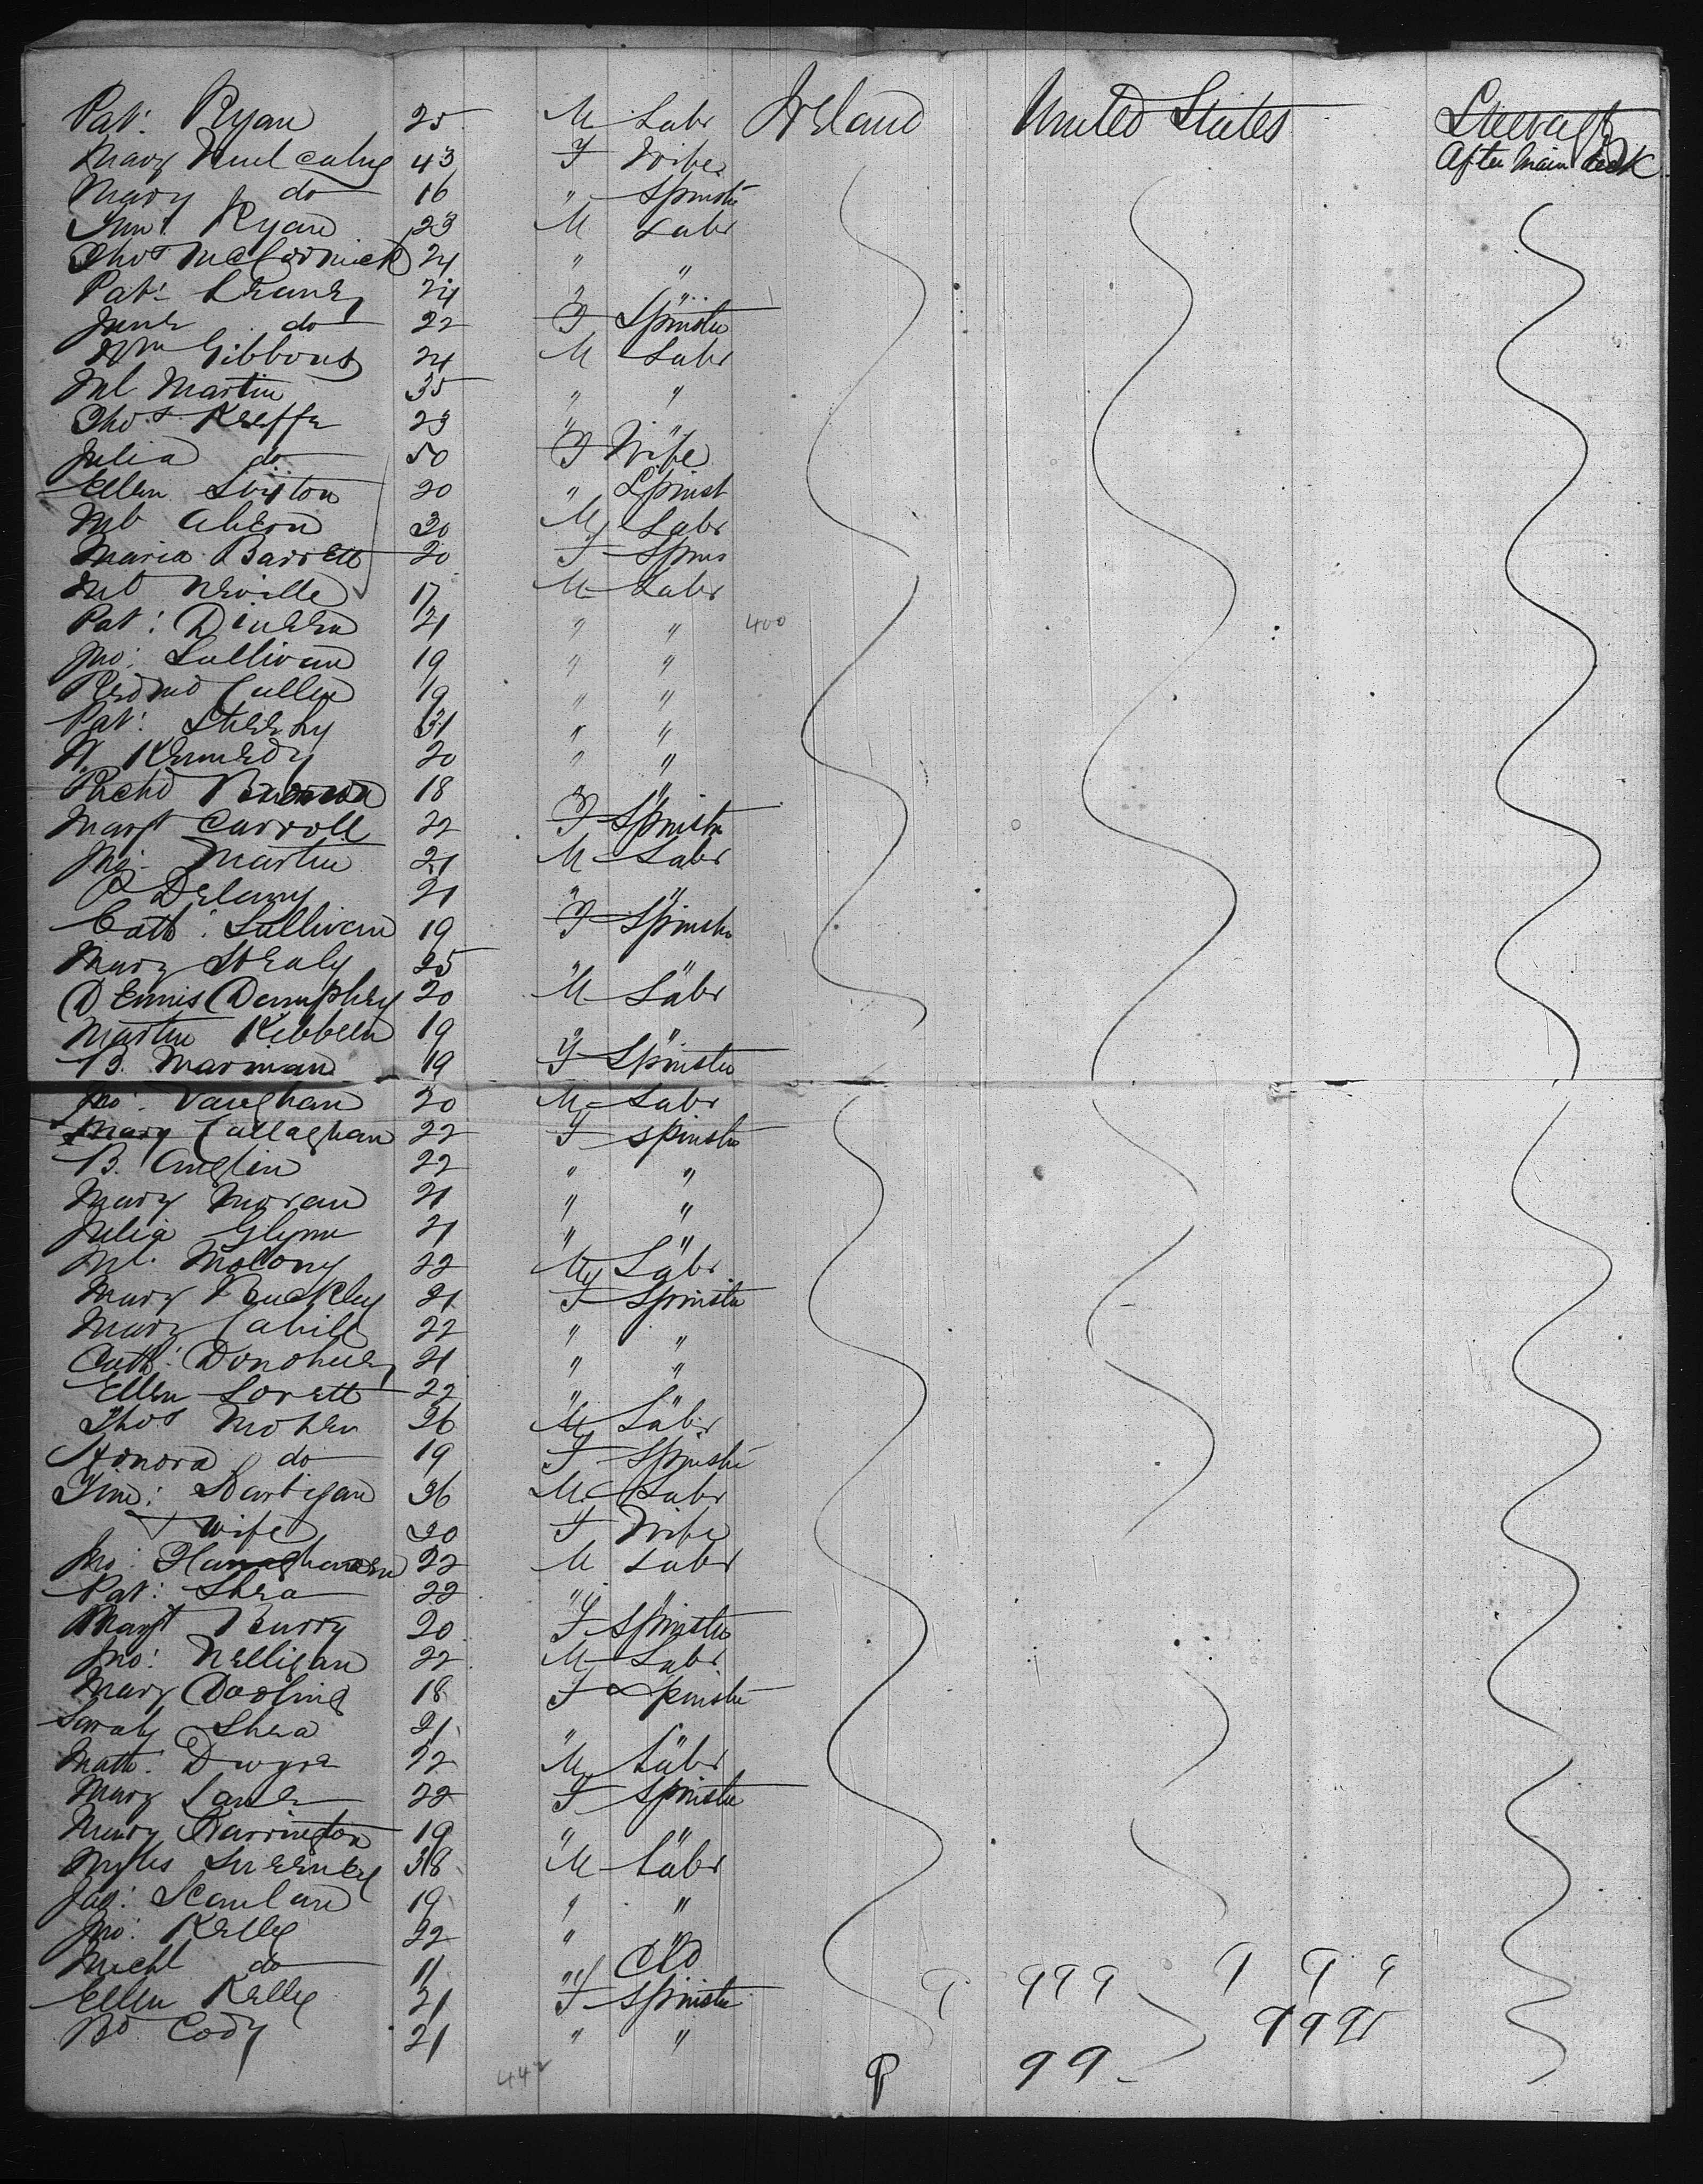 Pat: Ryan 25 M Labr Ireland United States Steerage
Mary Mulcahy 43 F Wife After Main deck
Mary do 16 " Spinstr
Ryan 23 M Labr
Thos McCormick 24 " "
Pat: 24 " "
Jane do 22 F Spinster
Wm Gibbons 24 M Labr
Ml Martin 35 " "
Thos Keeffe 23 " "
Julia do 50 F Wife
Ellen 20 " Spinst
Ml Ahern 20 M Labr
Maria Barrett 20 F Spins
Ml Neville 17 M Labr
Pat: Dineen 21 " " 400
Jno: Sullivan 19 " "
Redmd Cullen 19 " "
Pat: Sheehy 31 " "
W. Kennedy 20 " "
Richd 18 " "
Margt Carroll 22 F Spinstr
Martin 21 M Labr
P Delany 21 " "
Cath: Sullivan 19 F Spinstr
Mary Healy 25 " "
Dennis Dunphey 20 M Labr
Martin 19 " "
B. 19 F Spinster
Jno: Vaughan 20 M Labr
Mary Callaghan 22 F Spinstr
B. Anglin 22 " "
Mary Moran 21 " "
Julia Glynn 21 " "
Ml. Molony 22 M Labr
Mary Buckley 21 F Spinster
Mary Cahill 22 " "
Cath: Donohuey 21 " "
Ellen Lovett 22 " "
Thos Moher 26 M Labr
Honora do 19 F Spinstr
Tim: Hartigan 36 M Labr
+ wife 20 F Wife
Jno: 22 M Labr
Pat: Shea 22 " "
Margt Barry 20 F Spinster
Jno: Nelligan 22 M Labr
Mary Dooling 18 F Spinster
Sarah Shea 21 " "
Matt: Dwyre 22 M Labr
Mary 22 F Spinster
Mary Harrington 19 " "
Myles Sweeney 38 M Labr
Jas: Scanlan 19 " "
Jno: Kelly 22 " "
Michl do 11 " Cld
Ellen Kelly 21 F Spinster
Bd Cody 21 " "
442